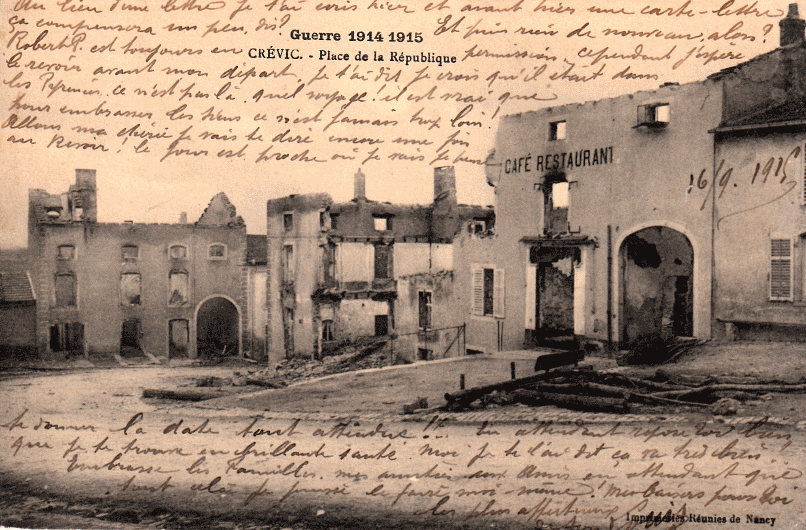 Au lieu d'une lettre je t'ai écris hier et avant hier une carte-lettre
ça compensera un peu, dis? Et puis rien de nouveau, alors?
Guerre 1914 1915
CRÉVIC. - Place de la République
Robert P. est toujours en permission, cependant j'espère
le revoir avant mon départ, je t'ai dit je crois qu'il était dans
les Pyrénées, ce n'est pas là, quel voyage! il est vrai que
pour embrasser les siens ce n'est jamais trop loin!
Allons ma chérie je vais te dire encore une fois
au revoir! le jour est proche où je vais je pense
CAFÉ RESTAURANT
16/9. 1915
te donner la date tant attendue!! En attendant repose toi bien
que je te trouve en brillante santé moi je te l'ai dit ça va très bien.
Embrasse les familles, mes amitiés aux amis en attendant que
tout cela je puisse le faire moi-même! Mes baisers pour toi
les plus affectueux
Imprimeries Réunies de Nancy